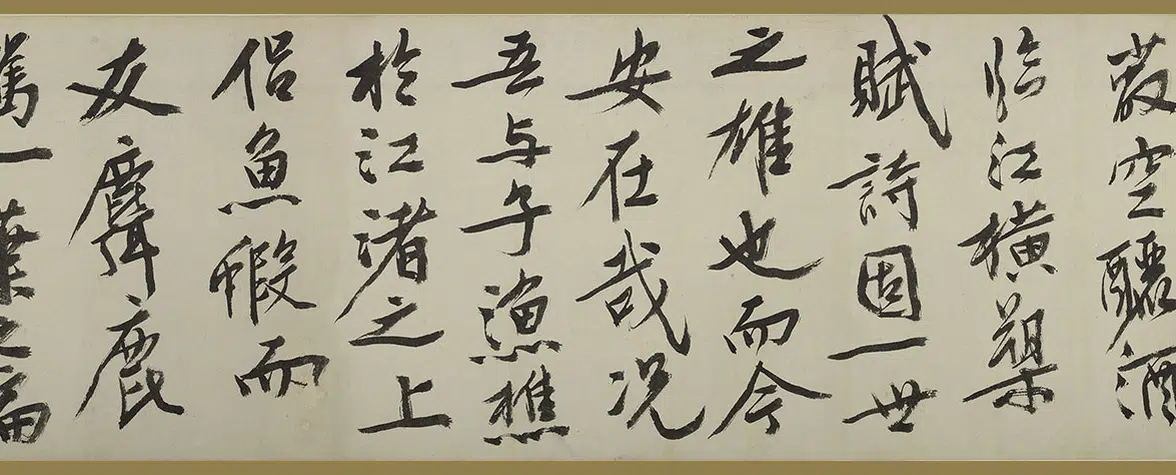 蔽空釃酒
臨江橫槊
賦詩固一世
之雄也而今
安在哉况
吾与子漁樵
於江渚之上
侣魚蝦而
友麋鹿
駕一葉之扁